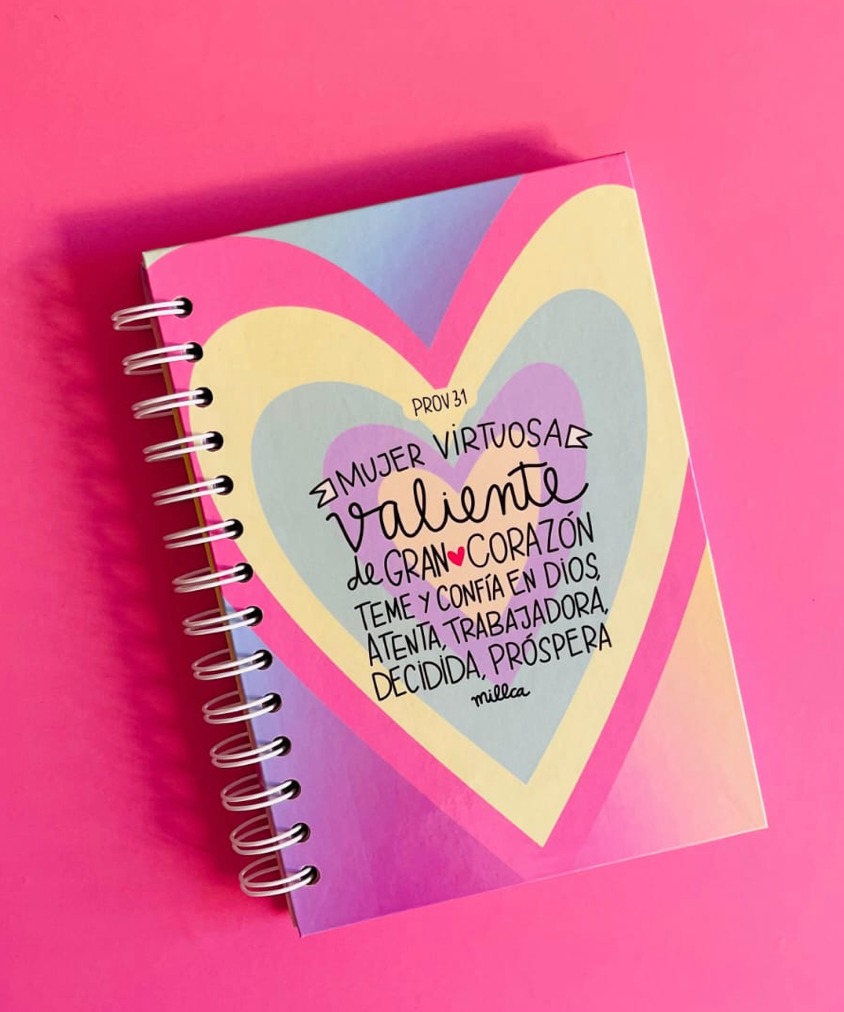 PROV 31
MUJER VIRTUOSA
valiente
de GRAN CORAZÓN
TEME Y CONFÍA EN DIOS,
ATENTA, TRABAJADORA,
DECIDIDA, PRÓSPERA
millca